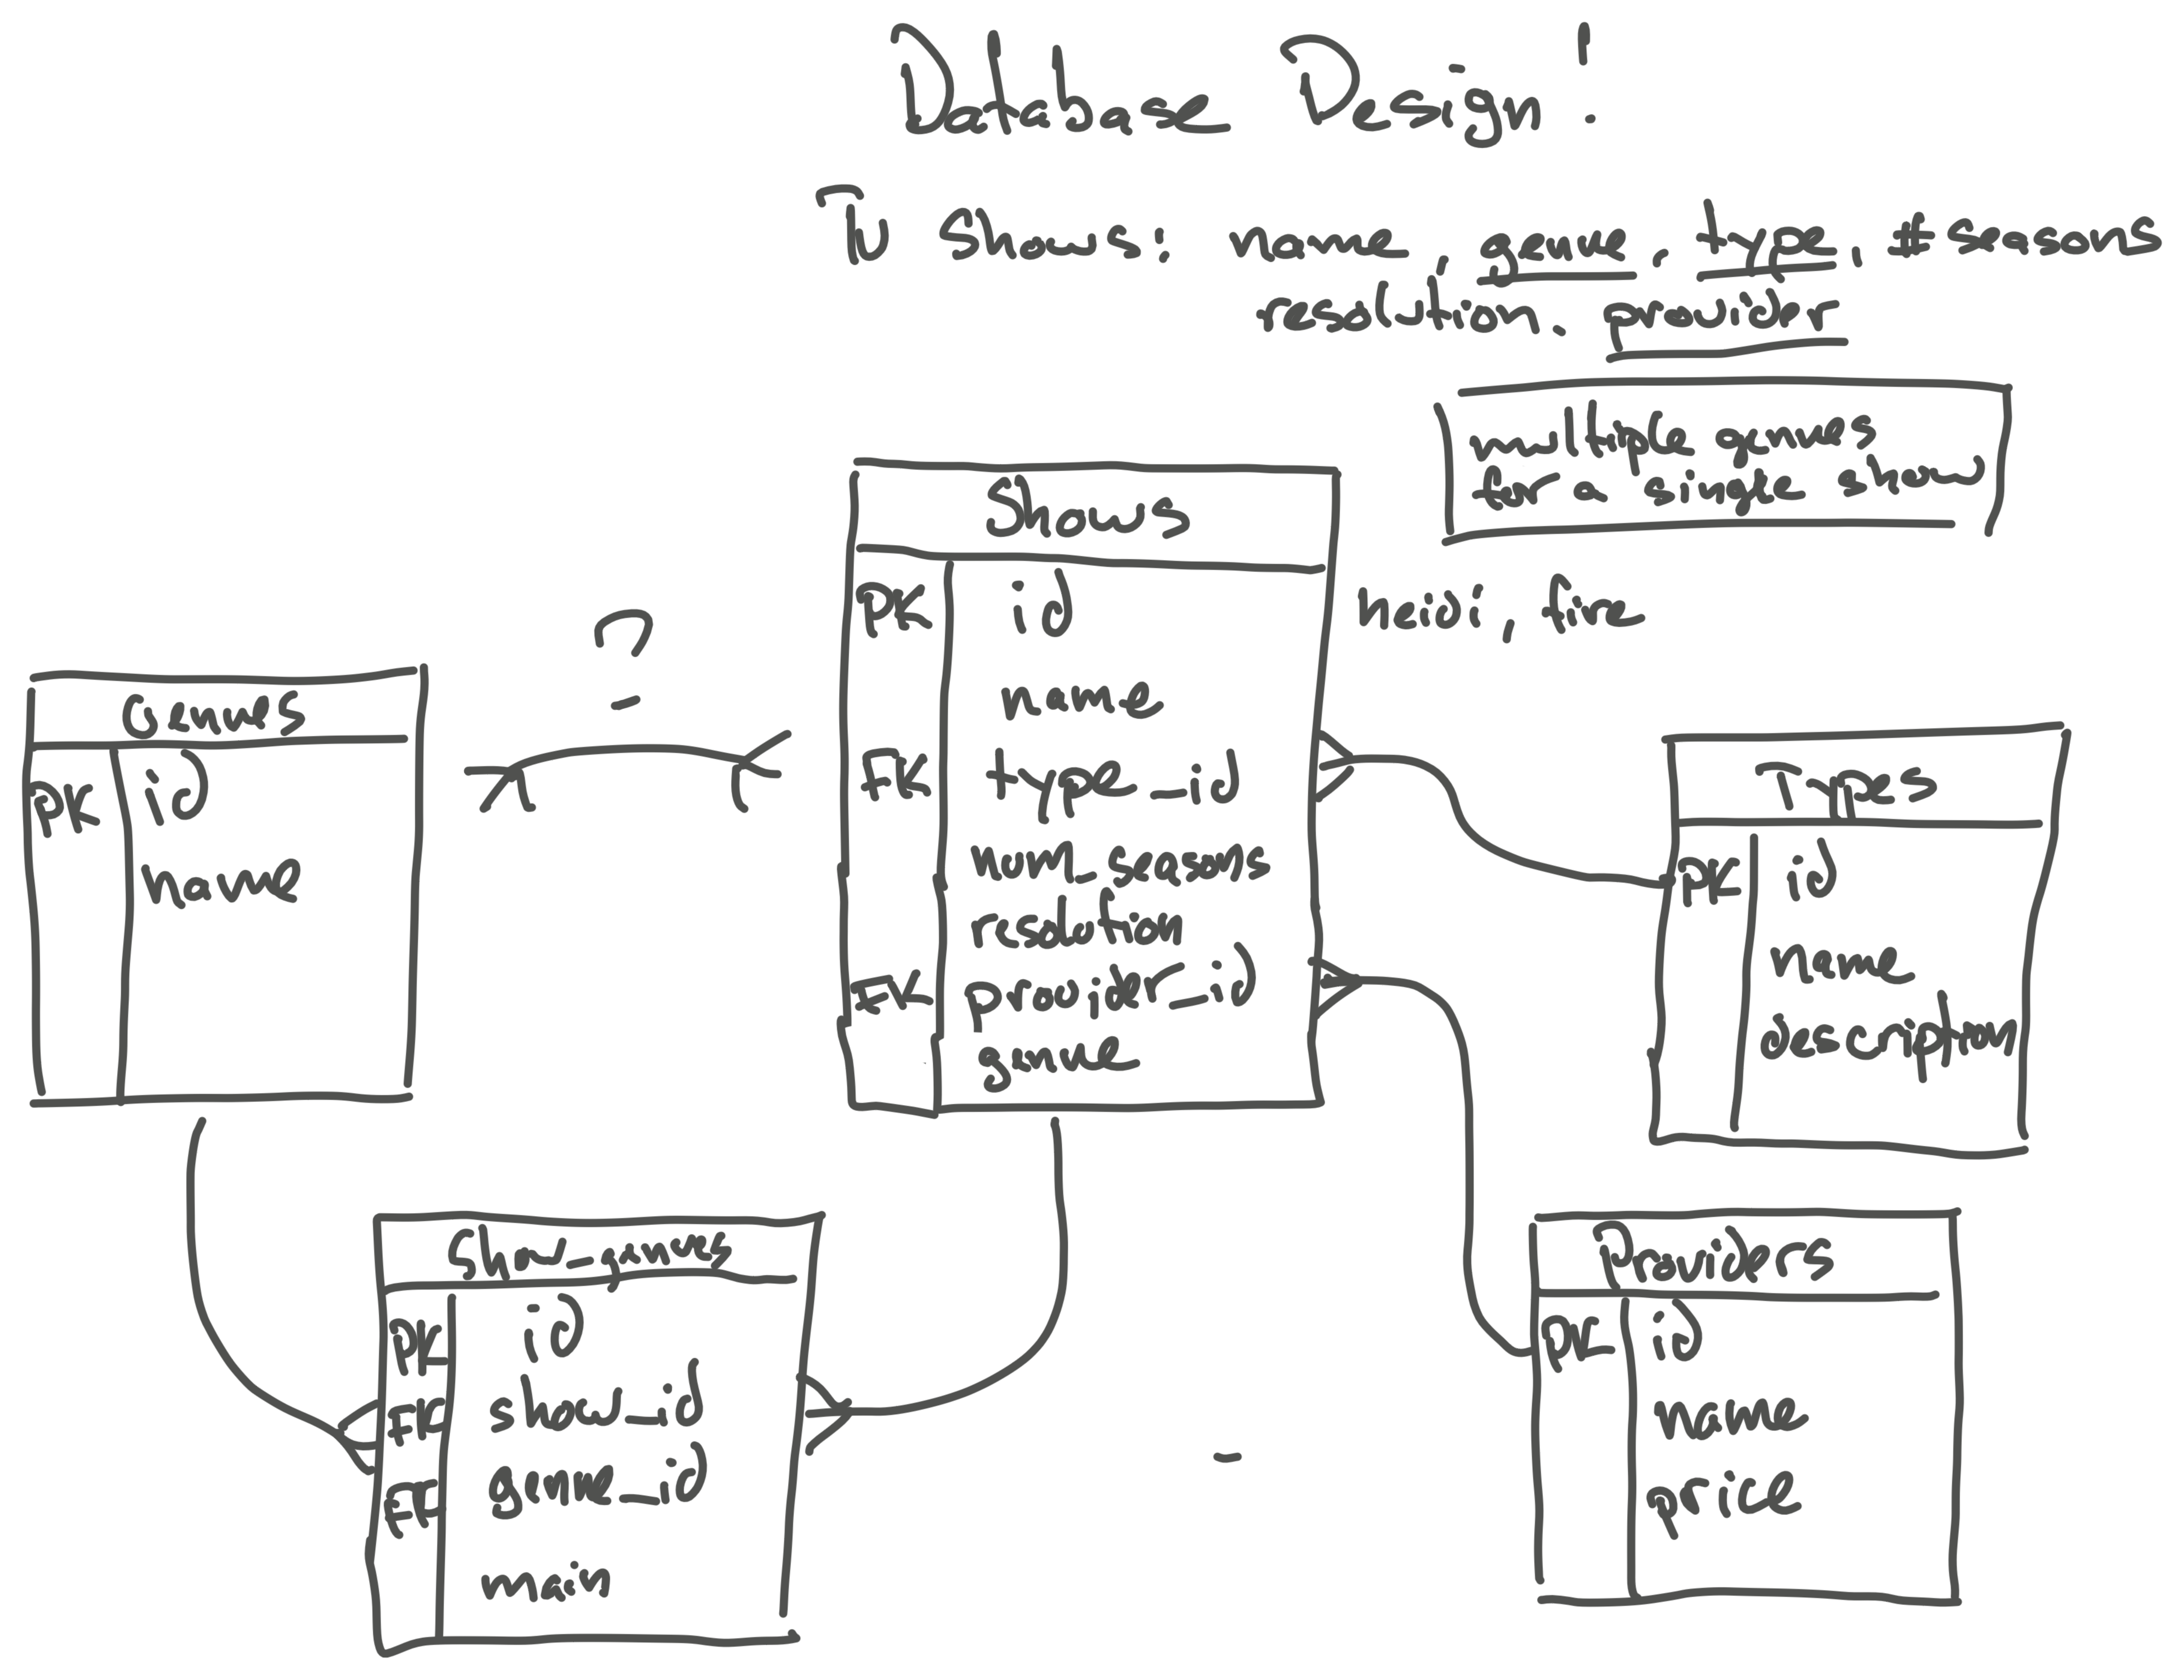 Database Design!
TV Shows: name, genre, type, #seasons
resolution, provider
multiple genres
for a single show
Shows
PK id
name
FK type_id
num_seasons
resolution
FK provider_id
genre
heidi, fire
?
Genres
PK id
name
Types
PK id
name
description
Show_genres
PK id
FK show_id
FK genre_id
main
Providers
PK id
name
price